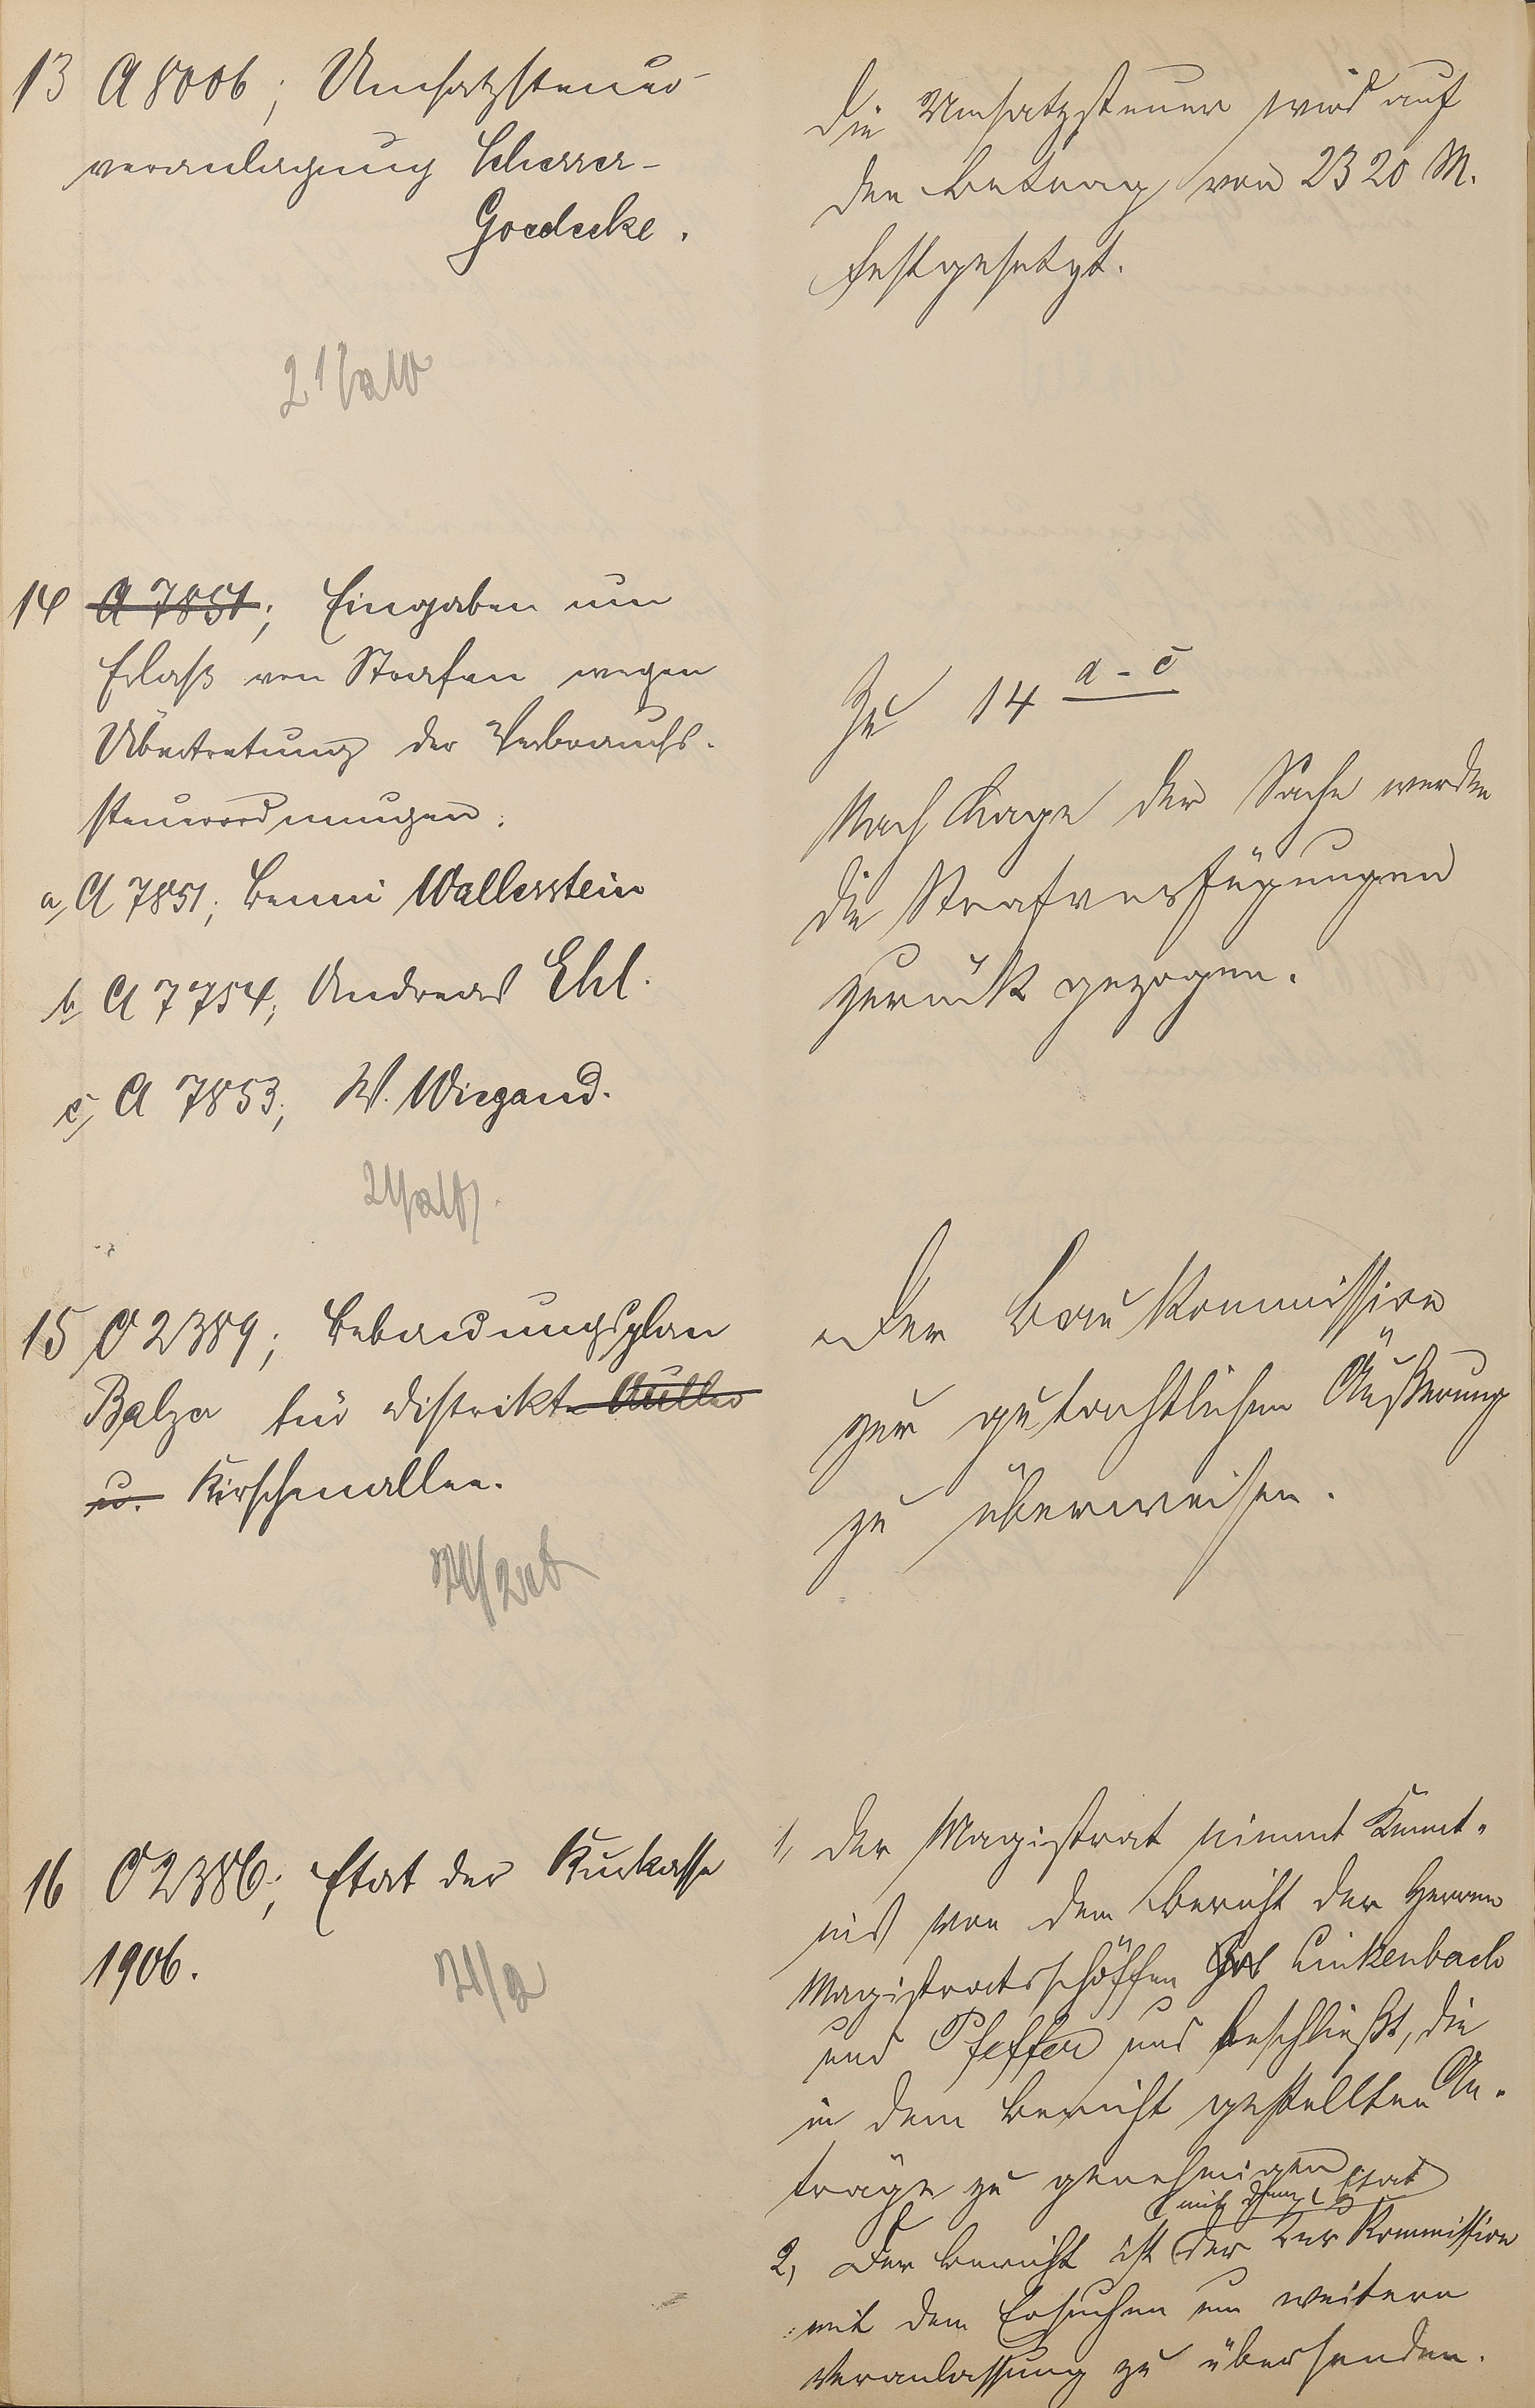 13 A 8006; Umsatzsteuer-
veranlagung Scherrer-
Goedecke.
Die Umsatzsteuer wird auf
den Betrag von 2320 M.
festgesetzt.
14 A 7851; Eingaben um
Erlaß von Strafen wegen
Übertretung der Verbrauchs-
steuerordnungen.
a, A 7851; Benni Wallerstein
b, A 7754; Andreas Ehl.
c, A 7853; W. Wiegand.
Zu 14 a-c
Nach Lage der Sache werden
die Strafverfügungen
zurück gezogen.
15 C 2389; Bebauungsplan
Balzer für Distrikt
u. Kirschenallee.
Der Bau Kommission
zur gutachtlichen Äußerung
zu überweisen.
16 C 2386; Etat der Kurkasse
1906.
1, Der Magistrat nimmt Kennt-
nis von dem Bericht der Herren
Magistratsschöffen Linkenbach
und Pfeffer und beschließt, die
in dem Bericht gestellten An-
träge zu genehmigen
mit dem Etat
2, Der Bericht ist der Kur Kommission
mit dem Ersuchen um weitere
Veranlassung zu übersenden.